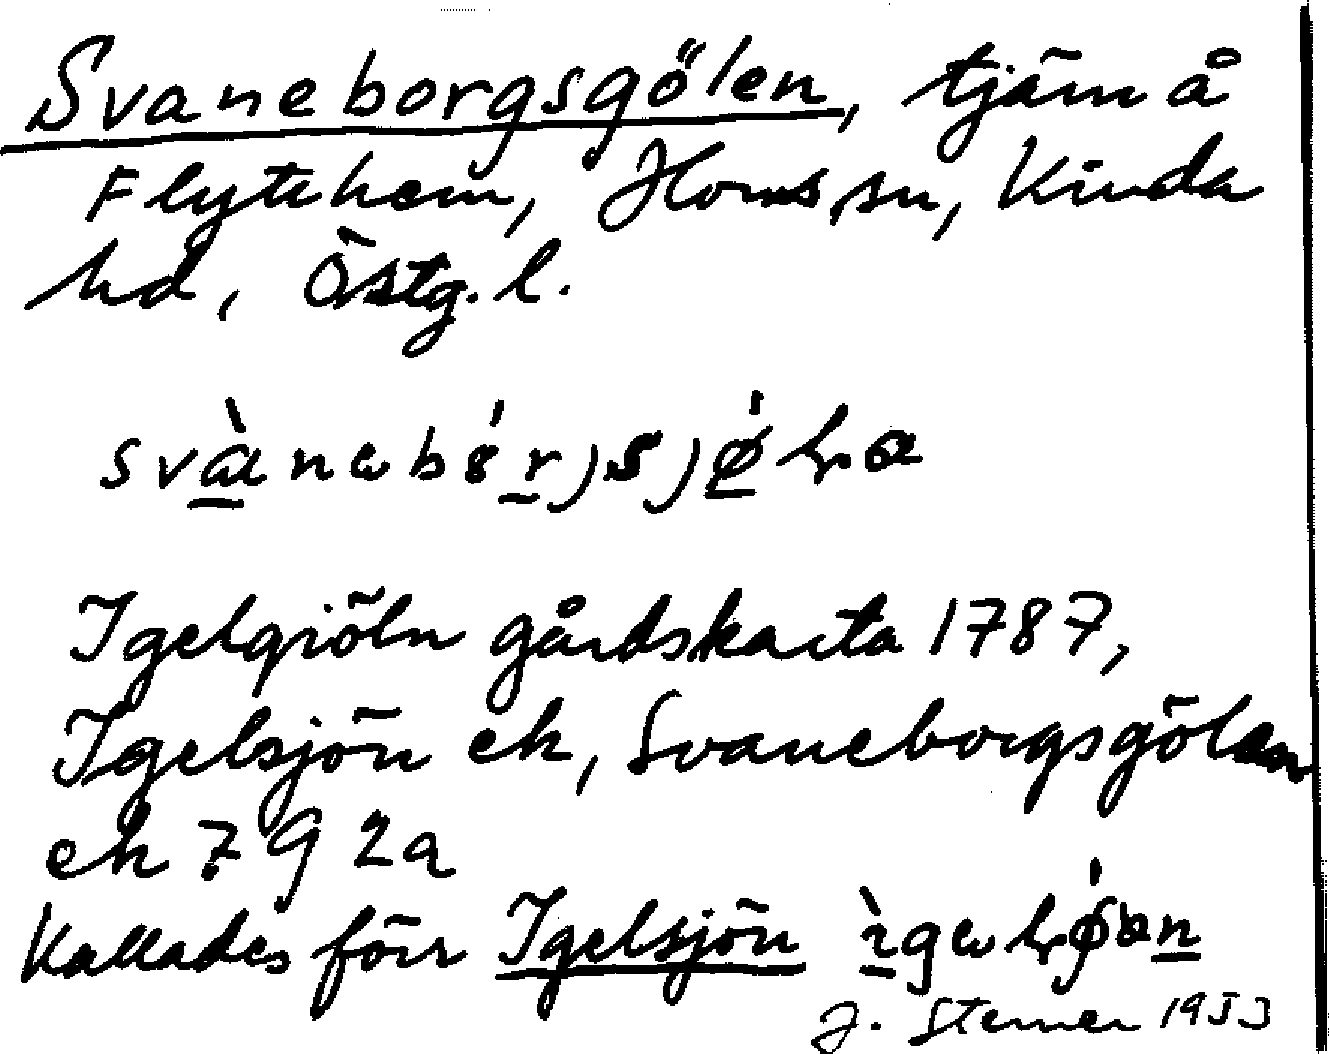 Svaneborgsgölen, tjärn å
Flytthem, Horns sn, Kinda
hd, Östg. l.
Igelgiöln gårdskarta 1787,
Igelsjön ek, Svaneborgsgölen
ek 792a
Kallades förr Igelsjön
J. Sterner 1953